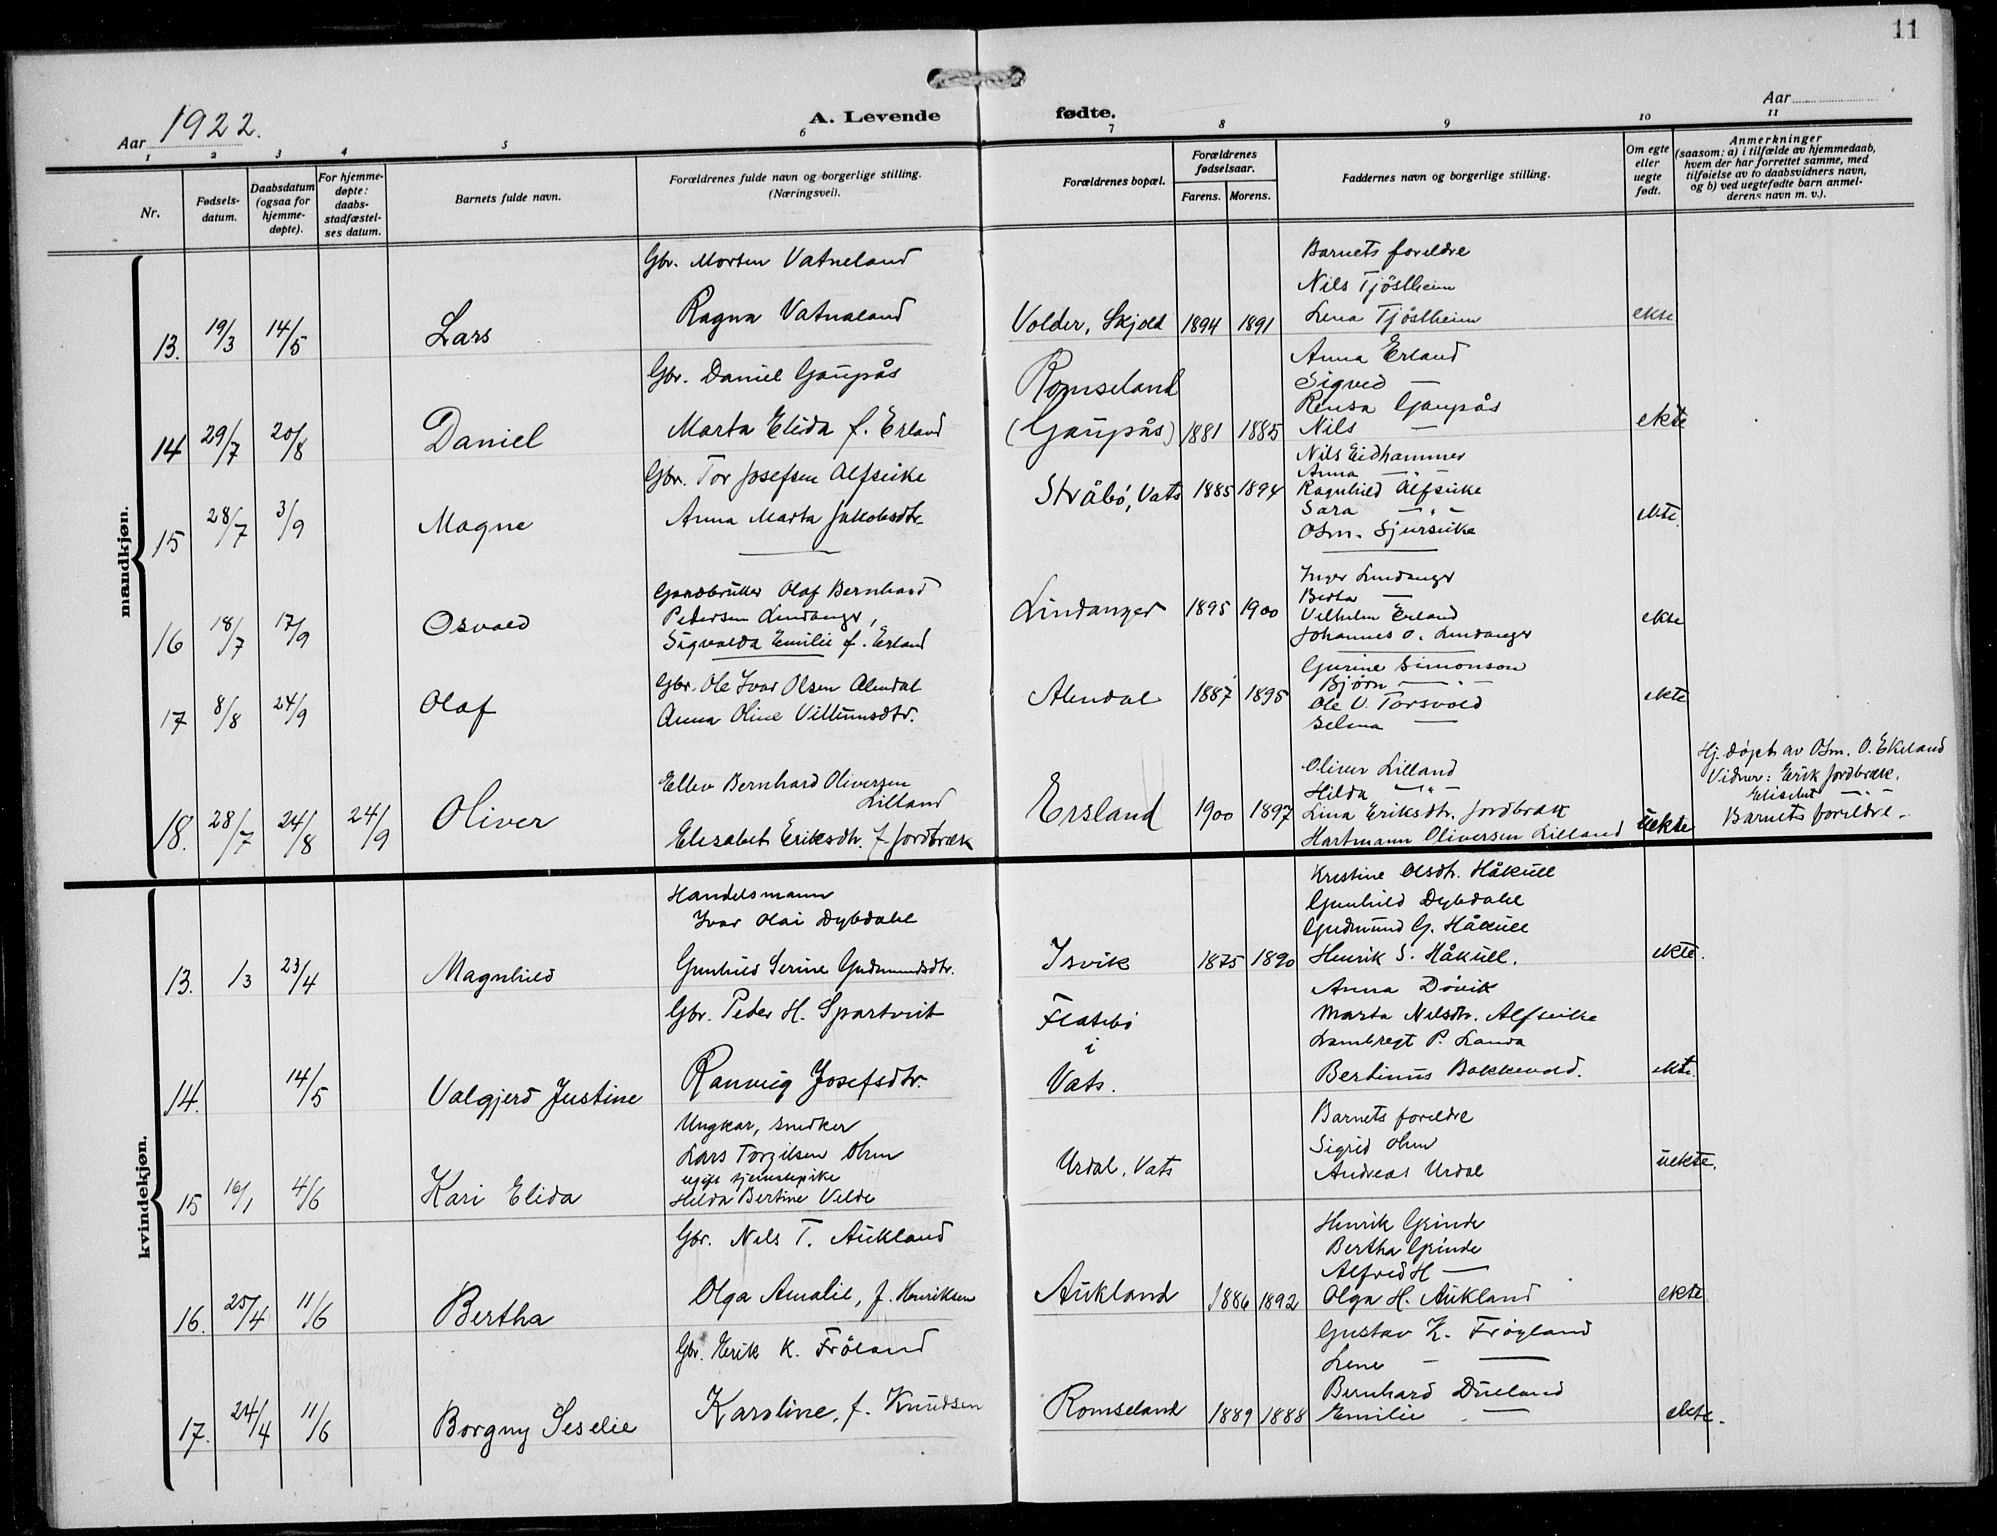 11
Aar 1922.
A. Levende
fødte.
Aar
1 2 3 4 5 6 7 8 9 10 11
Nr.
Fødsels-
datum.
Daabsdatum
(ogsaa for
hjemme-
døpte).
For hjemme-
døpte:
daabs-
stadfæstel-
ses datum.
Barnets fulde navn.
Forældrenes fulde navn og borgerlige stilling.
(Næringsvei).
Forældrenes bopæl.
Forældrenes
fødselsaar.
Farens. Morens.
Faddernes navn og borgerlige stilling.
Om egte
eller
uegte
født.
Anmerkninger
(saasom: a) i tilfælde av hjemmedaab,
hvem der har forrettet samme, med
tilføielse av to daabsvidners navn,
og b) ved uegtefødte barn anmel-
derens navn m. v.).
mandkjøn.
13. 19/3 14/5 Lars
Gbr. Morten Vatneland
Ragna Vatnaland
Volder, Skjold 1894 1891
Barnets foreldre
Nils Tjöstheim
Lena Tjöstheim
ekte
14 29/7 20/8 Daniel
Gbr. Daniel Gaupås
Marta Elida f. Erland
Romseland
(Gaupås) 1881 1885
Anna Erland
Sigved —
Rensa Gaupås
Nils —
ekte
15 28/7 3/9 Magne
Gbr. Tor Josefsen Alfseike
Anna Marta Jakobsdtr.
Stråbö, Vats 1885 1894
Nils Eidhammer
Anna — " —
Ragnhild Alfseike
Sara — " —
Osm. Sjurseike
ekte.
16 18/7 17/9 Osvald
Gardbruker Olaf Bernhard
Pedersen Lindanger,
Sigvalda Emilie f. Erland
Lindanger 1895 1900
Inger Lindanger
Berta —
Vilhelm Erland
Johannes O. Lindanger
ekte
17 8/8 24/9 Olaf
Gbr. Ole Ivar Olsen Alendal
Anna Oline Villumsdtr.
Alendal 1887 1895
Gurine Simonson
Bjørn — " —
Ole V. Torsvold
Selma —
ekte
18. 28/7 24/8 24/9 Oliver
Ellev Bernhard Oliversen
Lilland
Elisabet Eriksdtr. f. Jordbræk
Ersland 1900 1897
Oliver Lilland
Hilda — " —
Lina Eriksdtr. Jordbræk
Hartmann Oliversen Lilland
uekte
Hj. döpt av Osm. O. Ekeland
Vidner: Erik Jordbræk.
Elisabet — " —
Barnets foreldre.
kvindekjøn.
13. 1/3 23/4 Magnhild
Handelsmann
Ivar Olai Dybdahl
Gunhild Serine Gudmundsdtr.
Isvik 1875 1890
Kristine Olsdtr. Håkull
Gunhild Dybdahl
Gudmund G. Håkull
Henrik S. Håkull.
ekte.
14. 14/5 Valgjerd Justine
Gbr. Peder H. Spartveit
Ranveig Josefsdtr.
Flatebö
i
Vats.
Anna Dövik
Marta Nilsdtr. Alfseike
Lambregt P. Landa
Bertinus Bakkevold.
ekte.
15 16/1 4/6 Kari Elida
Ungkar, snedker
Lars Torgilsen Ohm
ugift tjenestepike
Hilda Bertine Velde
Urdal, Vats
Barnets foreldre
Sigrid Ohm
Andreas Urdal
uekte.
16. 25/4 11/6 Bertha
Gbr. Nils T. Aukland
Olga Amalie, f. Henriksen
Aukland 1886 1892
Henrik Grinde
Bertha Grinde
Alfred H —
Olga H. Aukland
ekte.
17. 24/4 11/6 Borgny Seselie
Gbr. Henrik K. Fröland
Karoline, f. Knudsen
Romseland 1889 1888
Gustav K. Fröyland
Lene — —
Bernhard Dueland
Emilie —
ekte.